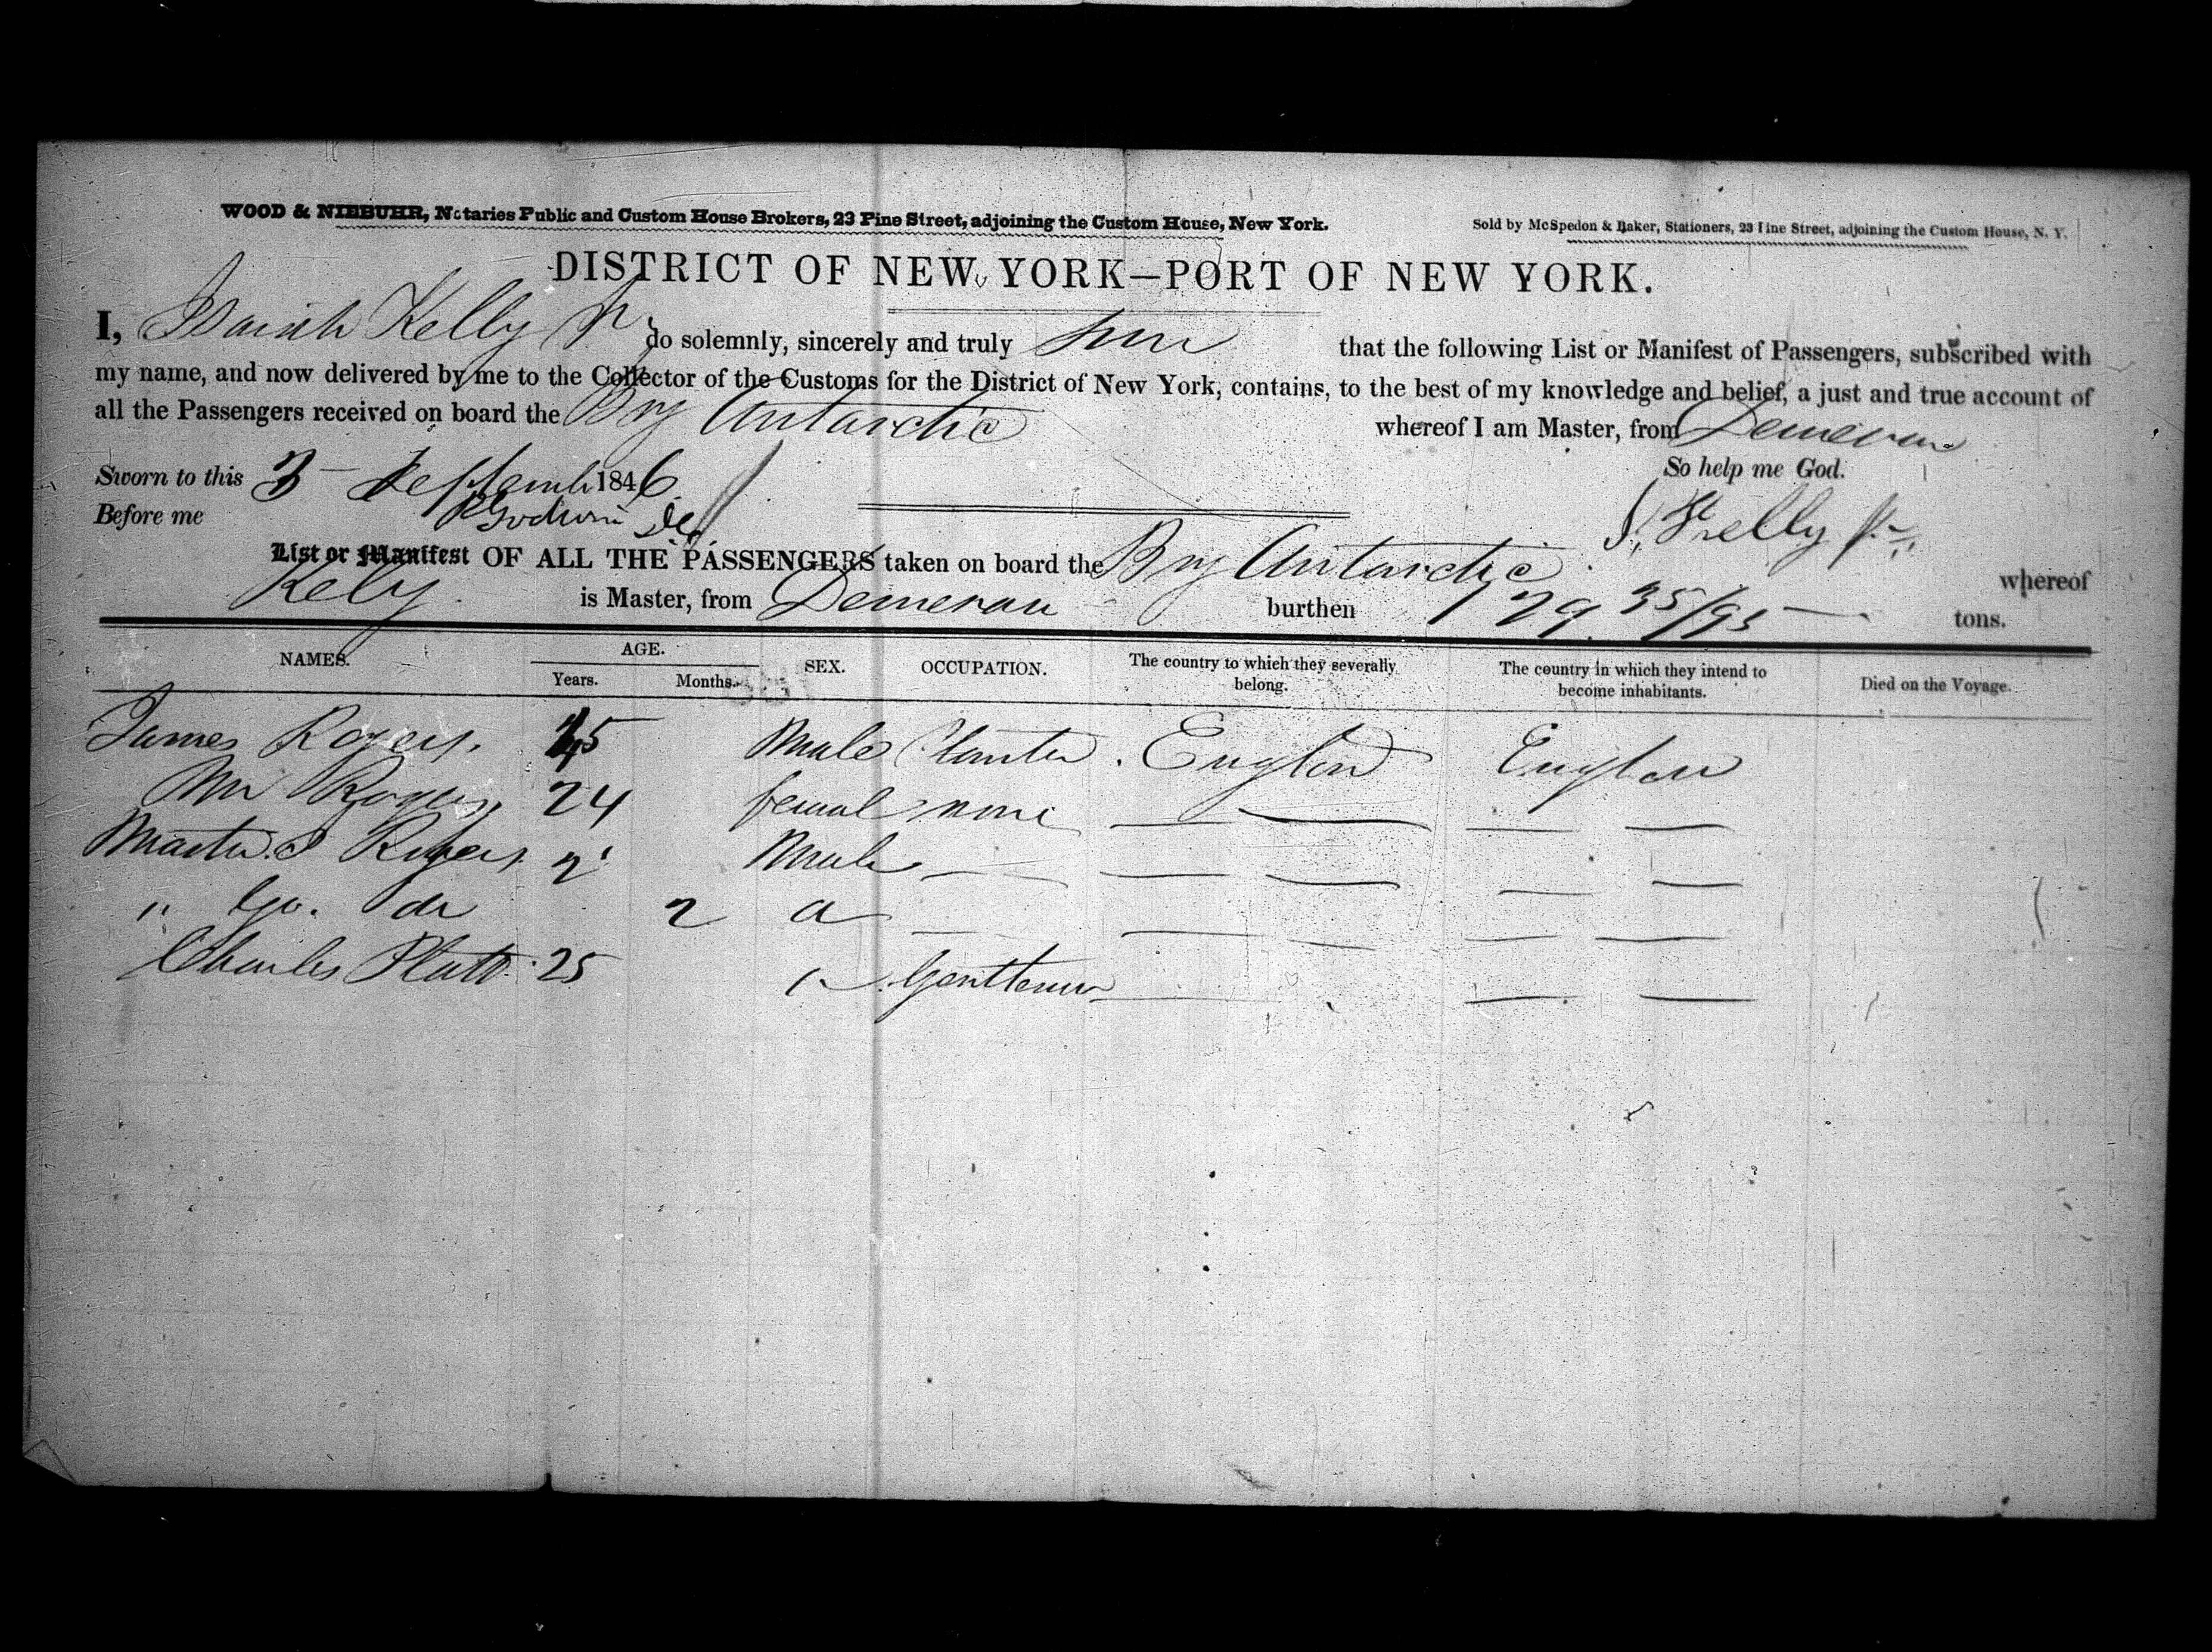 WOOD & NIEBUHR, Notaries Public and Custom House Brokers, 23 Pine Street, adjoining the Custom House, New York.
Sold by McSpedon & Baker, Stationers, 23 Pine Street, adjoining the Custom House, N. Y.
DISTRICT OF NEW YORK—PORT OF NEW YORK.
I, Isaiah Kelly Jr do solemnly, sincerely and truly swear that the following List or Manifest of Passengers, subscribed with
my name, and now delivered by me to the Collector of the Customs for the District of New York, contains, to the best of my knowledge and belief, a just and true account of
all the Passengers received on board the Brig Antarctic whereof I am Master, from Demerara
Sworn to this 3 September 1846 So help me God.
Before me Godwin I. Kelly Jr
List or Manifest OF ALL THE PASSENGERS taken on board the Brig Antarctic whereof
Kelly is Master, from Demerara burthen 129 35/95 tons.
NAMES. AGE. Years. Months. SEX. OCCUPATION. The country to which they severally belong. The country in which they intend to become inhabitants. Died on the Voyage.
James Rogers. 45 Male Planter. England England
Mrs Rogers, 24 female none
Master J Rogers 2 Male
" Geo. do 2 "
Charles Platt 25 " Gentleman